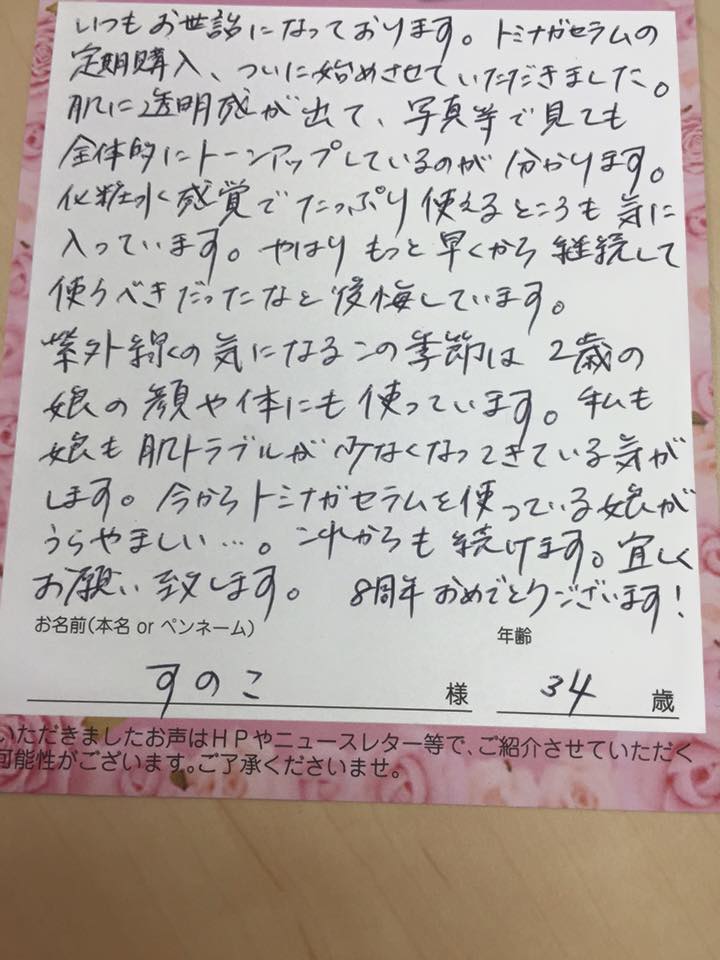 いつもお世話になっております。トミナガセラムの
定期購入、ついに始めさせていただきました。
肌に透明感が出て、写真等で見ても
全体的にトーンアップしているのが分かります。
化粧水感覚でたっぷり使えるところも気に
入っています。やはりもっと早くから継続して
使うべきだったなと後悔しています。
紫外線の気になるこの季節は2歳の
娘の顔や体にも使っています。私も
娘も肌トラブルが少なくなってきている気が
します。今からトミナガセラムを使っている娘が
うらやましい…。これからも続けます。宜しく
お願い致します。 8周年おめでとうございます!
お名前(本名 or ペンネーム) 年齢
すのこ 様 34 歳
いただきましたお声はHPやニュースレター等で、ご紹介させていただく
可能性がございます。ご了承くださいませ。